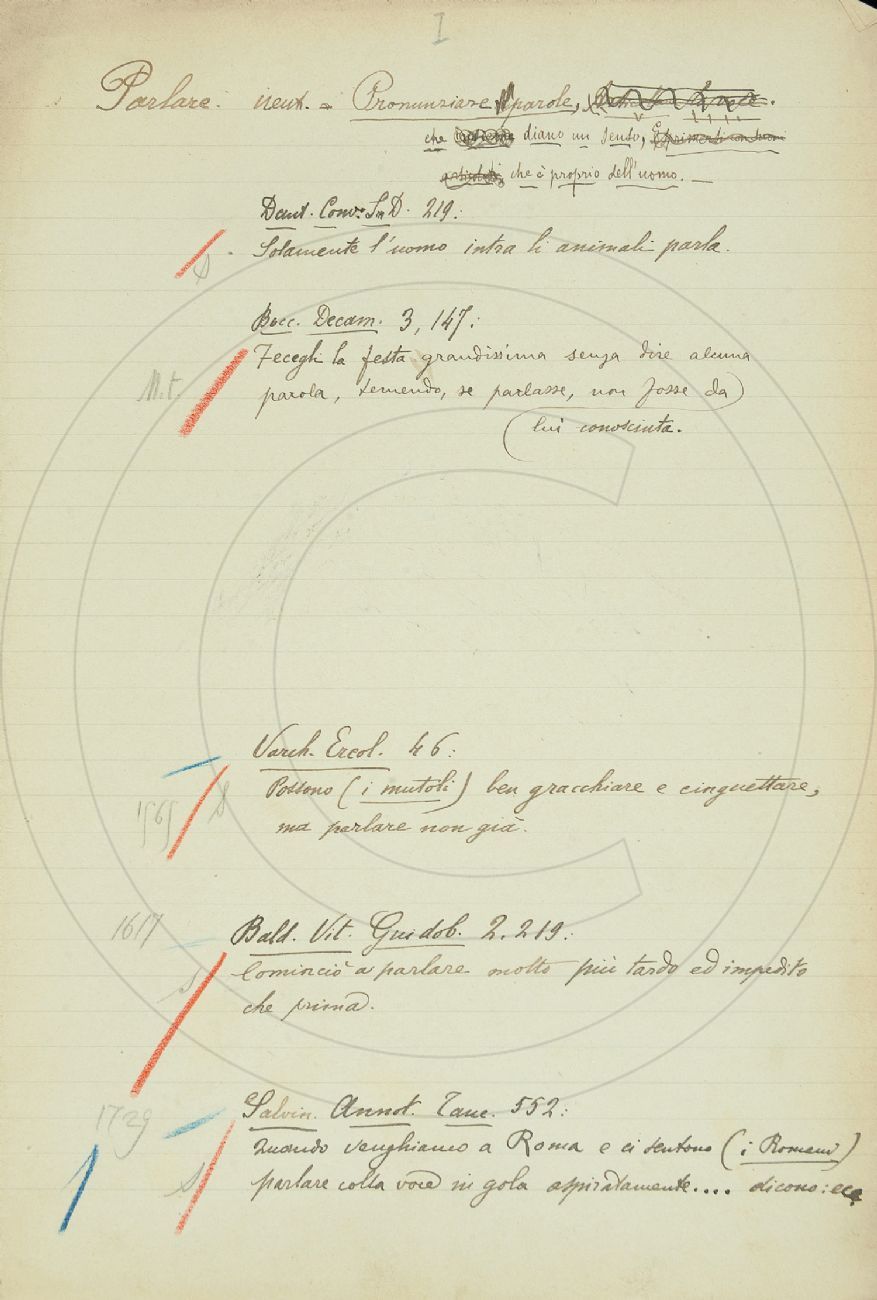 I
Parlare. neut. = Pronunziare parole,
che diano un senso, Esprimersi con suoni
articolati, che è proprio dell'uomo. —
Dant. Conv. S. D. 219:
S - Solamente l'uomo intra li animali parla.
Bocc. Decam. 3, 147:
Fecegli la festa grandissima senza dire alcuna
M.t. parola, temendo, se parlasse, non fosse da
lui conosciuta.
Varch. Ercol. 46:
Possono (i mutoli) ben gracchiare e cinguettare,
1569 S ma parlare non già.
1617 Bald. Vit. Guidob. 2. 219:
S Cominciò a parlare molto più tardo ed impedito
che prima.
1729 Salvin. Annot. Tanc. 552:
Quando venghiamo a Roma e ci sentono (i Romani)
S parlare colla voce in gola aspiratamente.... dicono: ecc